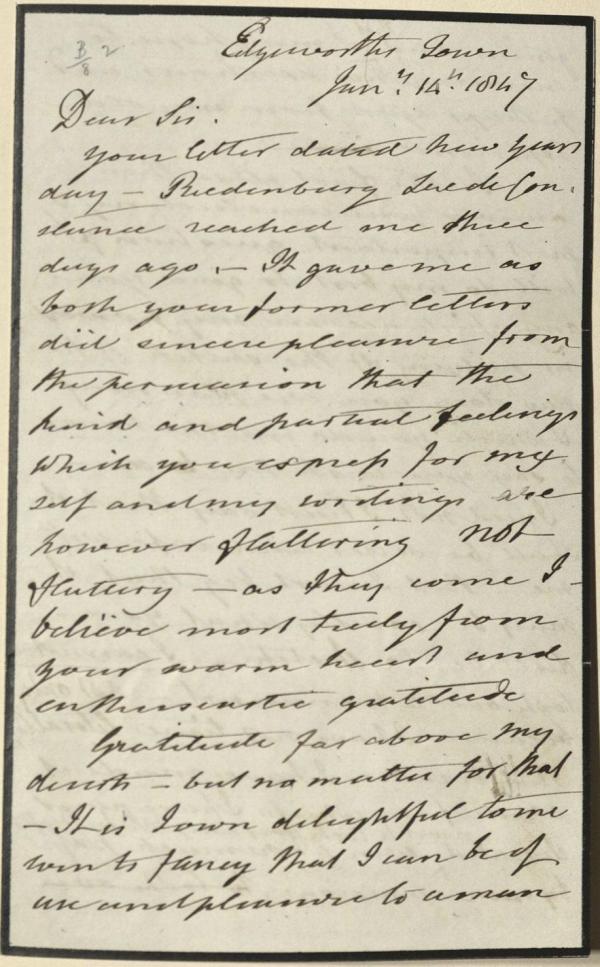 B/8 2
Edgeworth's Town
Jany. 14th. 1847
Dear Sir.
your letter dated New Years
day – Riedenburg Lac de Con.
stance reached me three
days ago. – It gave me as
both your former letters
did sincere pleasure from
the persuasion that the
kind and partial feelings
which you express for my
self and my writings are
however flattering not
flattery – as they come I
believe most truly from
your warm heart and
enthusiastic gratitude
Gratitude far above my
deserts – but no matter for that
– It is I own delightful to me
even to fancy that I can be of
use and pleasure to a man